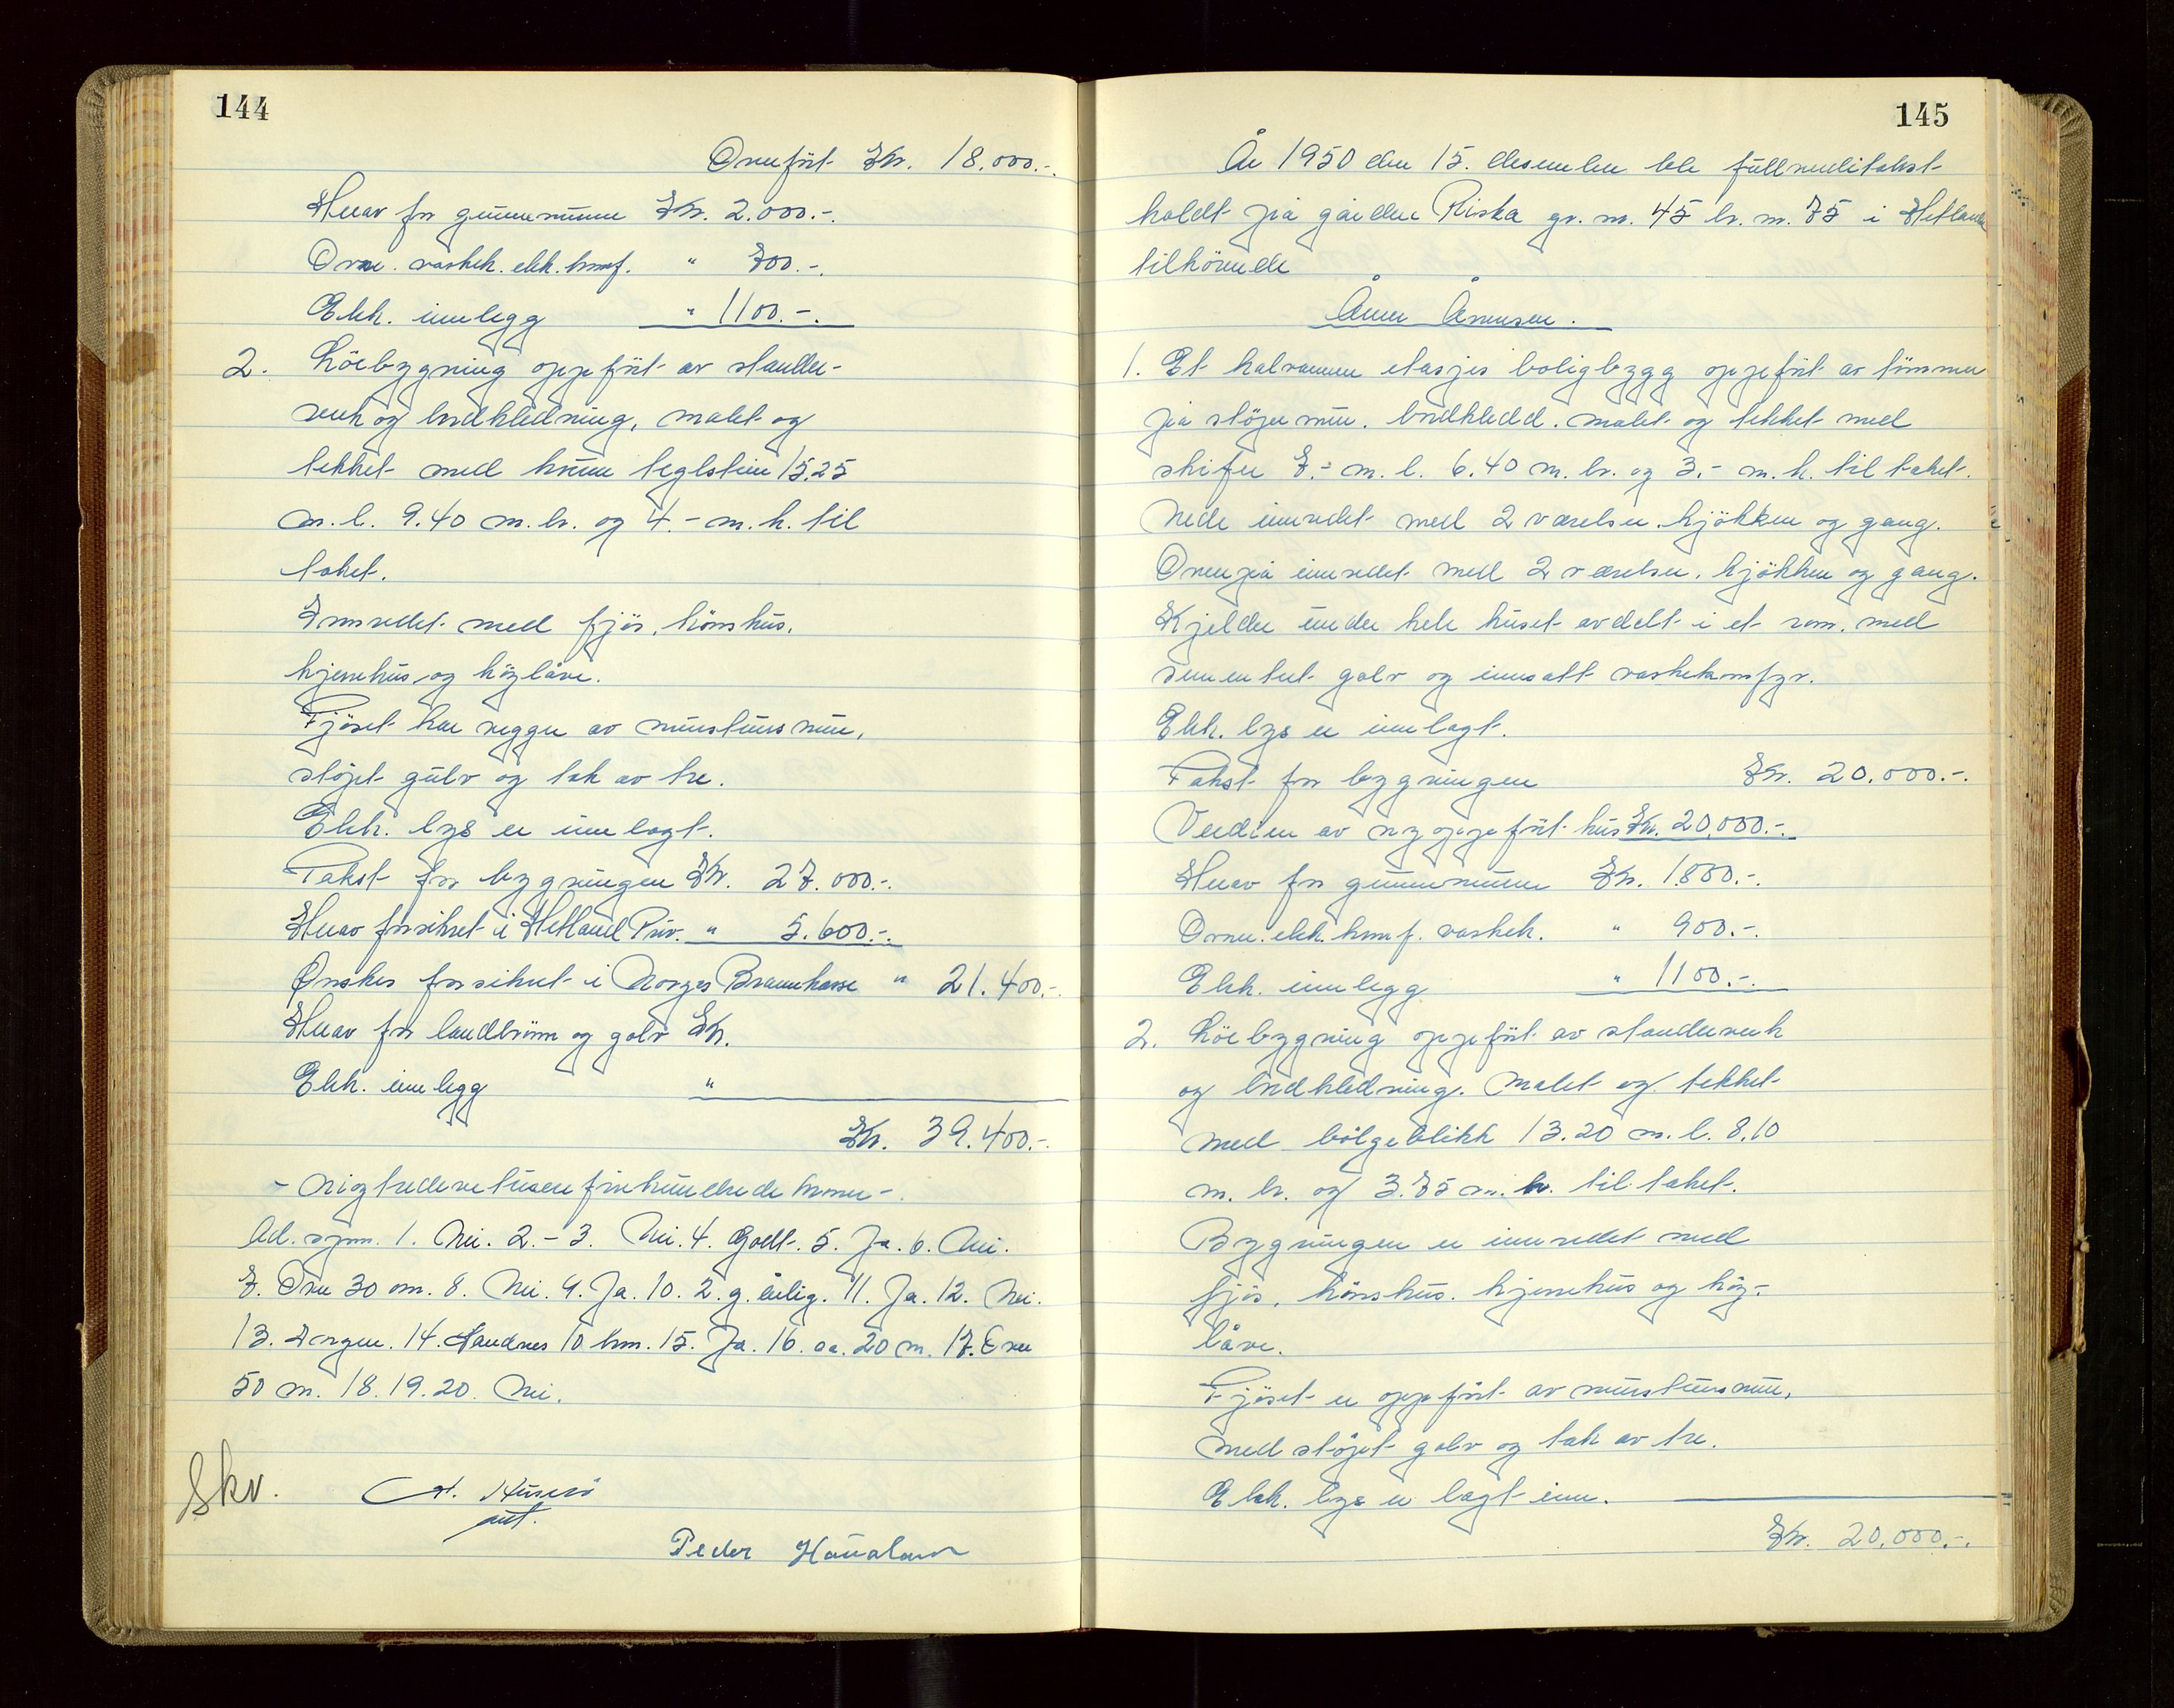 144
Overført Kr. 18.000.-.
Herav for grunnmuren Kr. 2.000.-.
Ovne. vaskek. elek. komf. " 700.-.
Elek. innlegg " 1100.-.
2. Løebygning oppført av stender-
verk og bordkledning, malet og
tekket med krum teglstein 15.25
m. l. 9.40 m. br. og 4.- m. h. til
taket.
Innredet med fjøs, hönshus,
kjerrehus og høylåve.
Fjøset har vegger av murstens mur,
støpt gulv og tak av tre.
Elek. lys er innlagt.
Takst for bygningen Kr. 27.000.-.
Herav forsikret i Hetland Priv. " 5.600.-.
Ønskes forsikret i Norges Brannkasse " 21.400.-.
Herav for landbrum og golv Kr.
Elek. innlegg "
Kr. 39.400.-.
- Niogtredevetusen firehundrede kroner -.
Ad. spm. 1. Nei. 2. - 3. Nei. 4. Godt. 5. Ja. 6. Nei.
7. Over 30 om. 8. Nei. 9. Ja. 10. 2. g. årlig. 11. Ja. 12. Nei.
13. Ingen. 14. Sandnes 10 km. 15. Ja. 16. ca. 20 m. 17. Over
50 m. 18. 19. 20. Nei.
Skv.
Peder Haualand
145
År 1950 den 15. desember ble fullverditakst
holdt på gården Riska gr. nr. 45 br. nr. 75 i Hetland
tilhörende
1. Et halvannen etasjes boligbygg oppført av tömmer
på støpe mur. bordkledd. malet og tekket med
skifer 7.- m. l. 6.40 m. br. og 3.- m. h. til taket.
Nede innredet med 2 værelser. kjökken og gang.
Ovenpå innredet med 2 værelser. kjökken og gang.
Kjelder under hele huset avdelt i et rom. med
sementert golv og innsatt vaskekomfyr.
Elek. lys er innlagt.
Takst for bygningen Kr. 20.000.-.
Verdien av nyoppført hus Kr. 20.000.-.
Herav for grunnmuren Kr. 1800.-.
Ovne. elek. komf. vaskek. " 900.-.
Elek. innlegg " 1100.-.
2. Løebygning oppført av stenderverk
og bordkledning. Malet og tekket
med bölgeblikk 13.20 m. l. 8.10
m. br. og 3.75 m. h. til taket.
Bygningen er innredet med
fjøs, hönshus. kjerrehus og høy-
låve.
Fjøset er oppført av murstens mur,
med støpt golv og tak av tre.
Elek. lys er lagt inn.
Kr. 20.000.-.